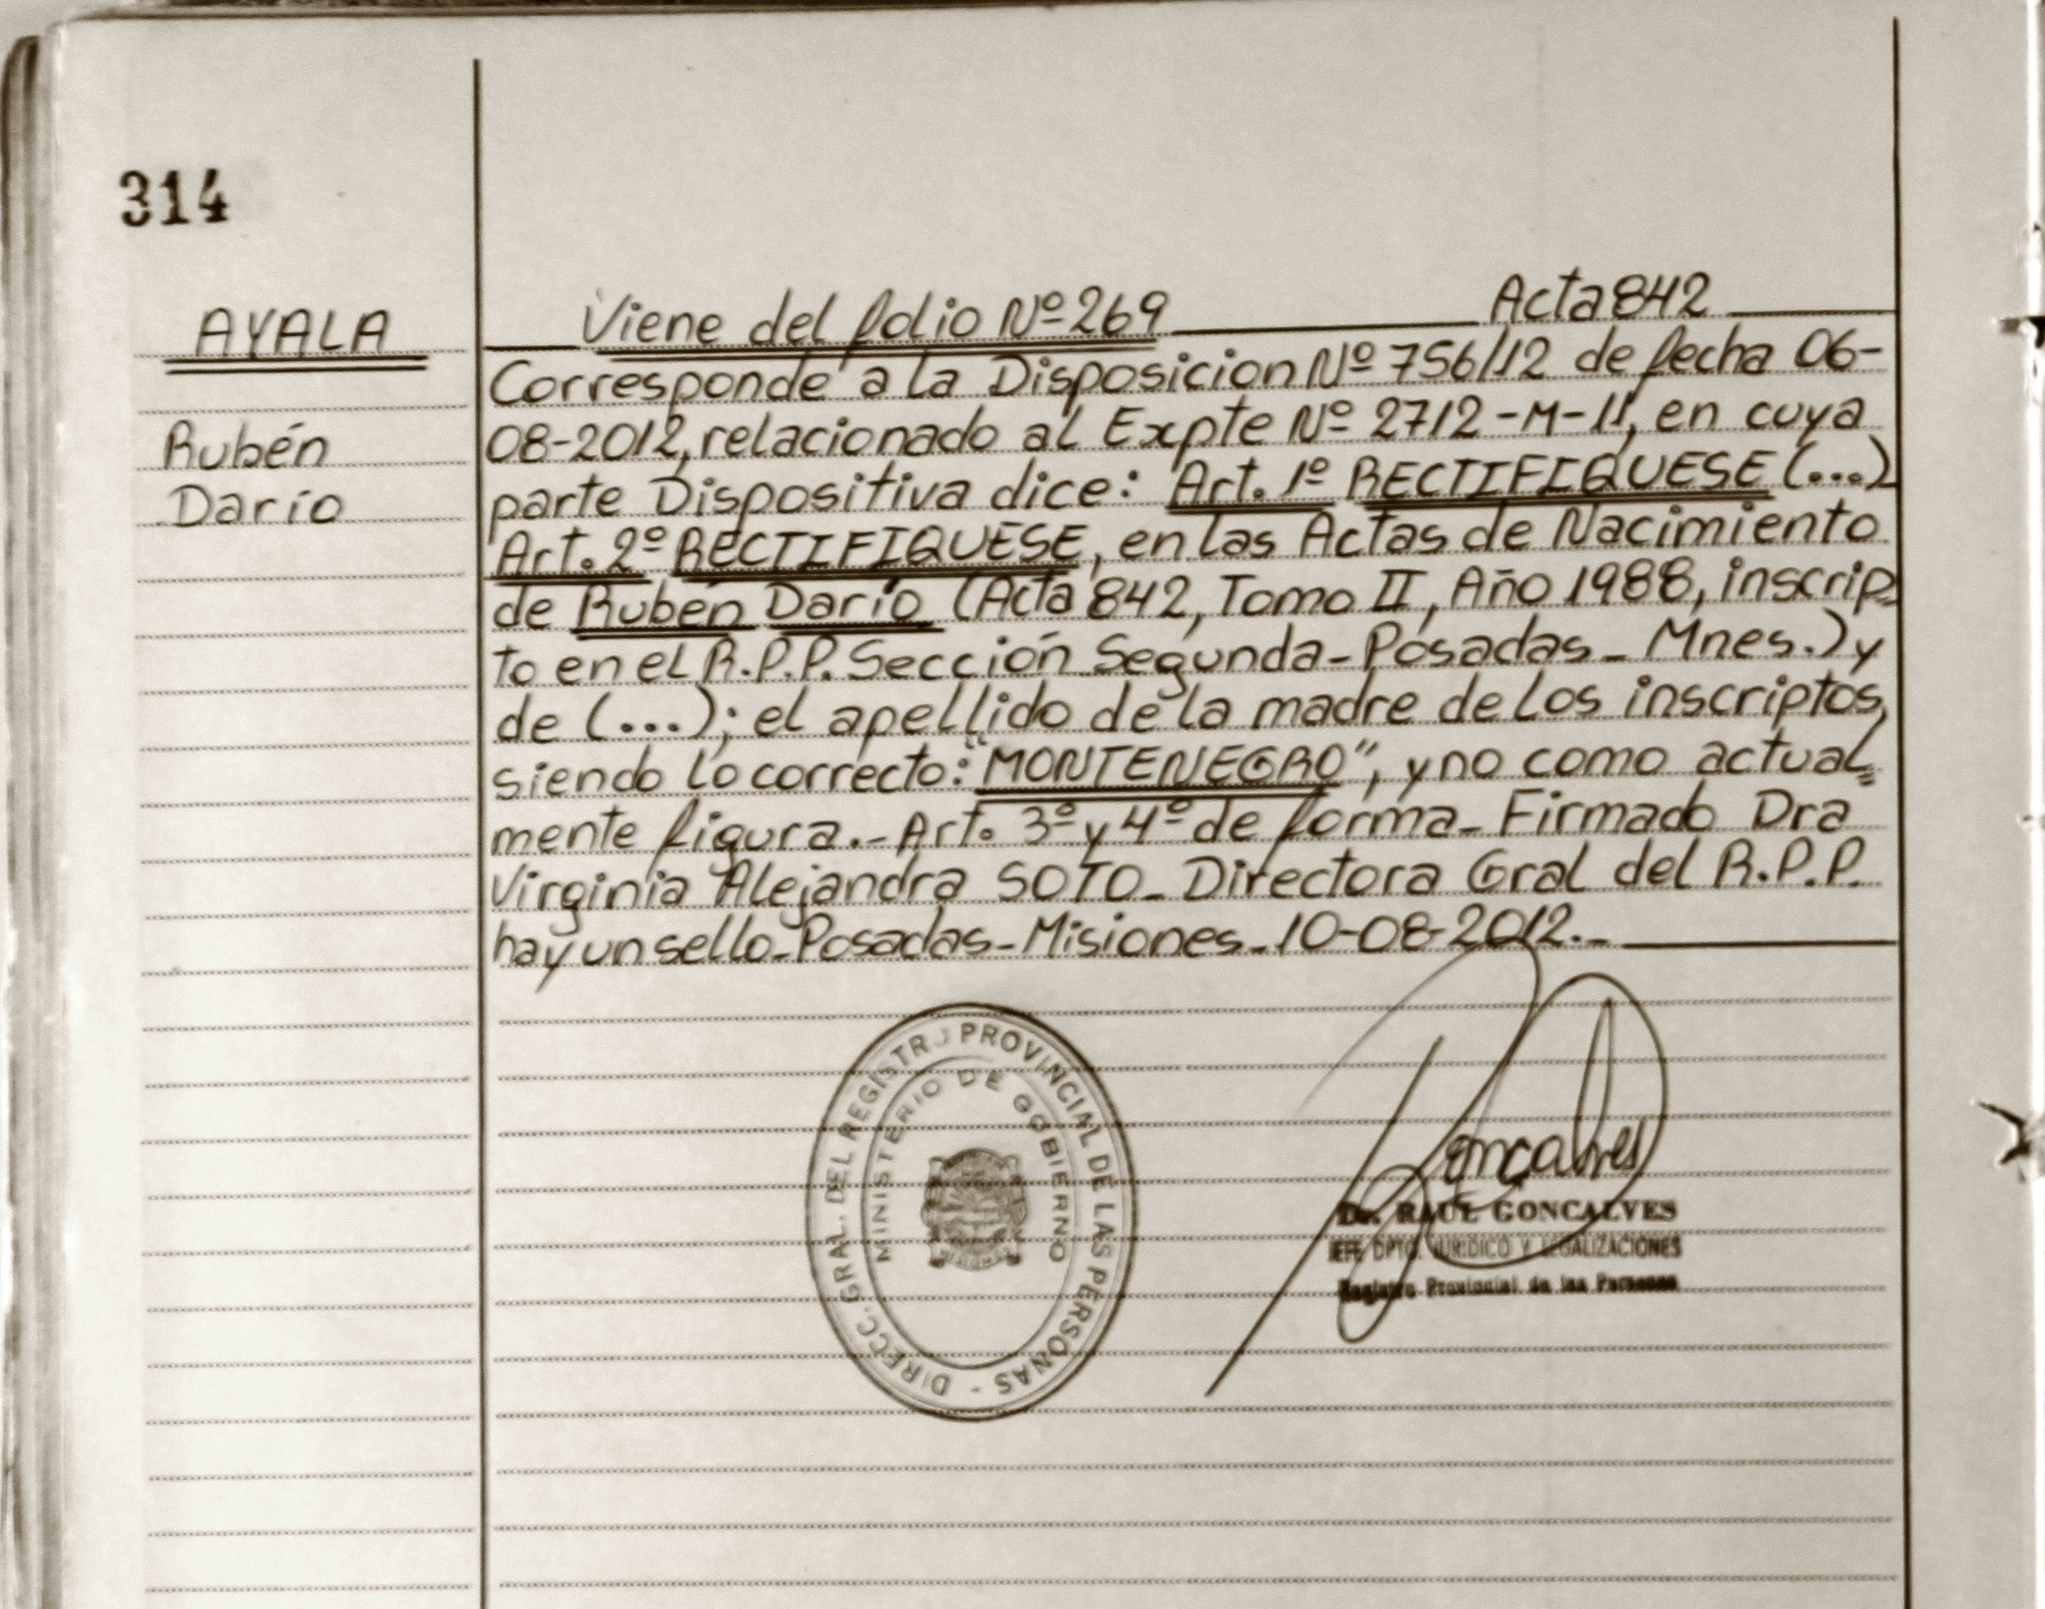 314
AYALA
Rubén
Darío
Viene del folio Nº 269 Acta 842
Corresponde a la Disposicion Nº 756/12 de fecha 06-
08-2012, relacionado al Expte Nº 2712-M-11, en cuya
parte Dispositiva dice: Art. 1º RECTIFIQUESE (...)
Art. 2º RECTIFIQUESE, en las Actas de Nacimiento
de Rubén Darío (Acta 842, Tomo II, Año 1988, inscrip=
to en el R.P.P. Sección Segunda-Posadas_Mnes.) y
de (...); el apellido de la madre de los inscriptos,
siendo lo correcto: "MONTENEGRO", y no como actual=
mente figura._ Art. 3º y 4º de forma_ Firmado Dra
Virginia Alejandra SOTO_ Directora Gral del R.P.P.
hay un sello_Posadas_Misiones_10-08-2012._
DIRECC. GRAL. DEL REGISTRO PROVINCIAL DE LAS PERSONAS -
MINISTERIO DE GOBIERNO
Goncalves
Dr. RAUL GONCALVES
JEFE DPTO. JURIDICO Y LEGALIZACIONES
Registro Provincial de las Personas